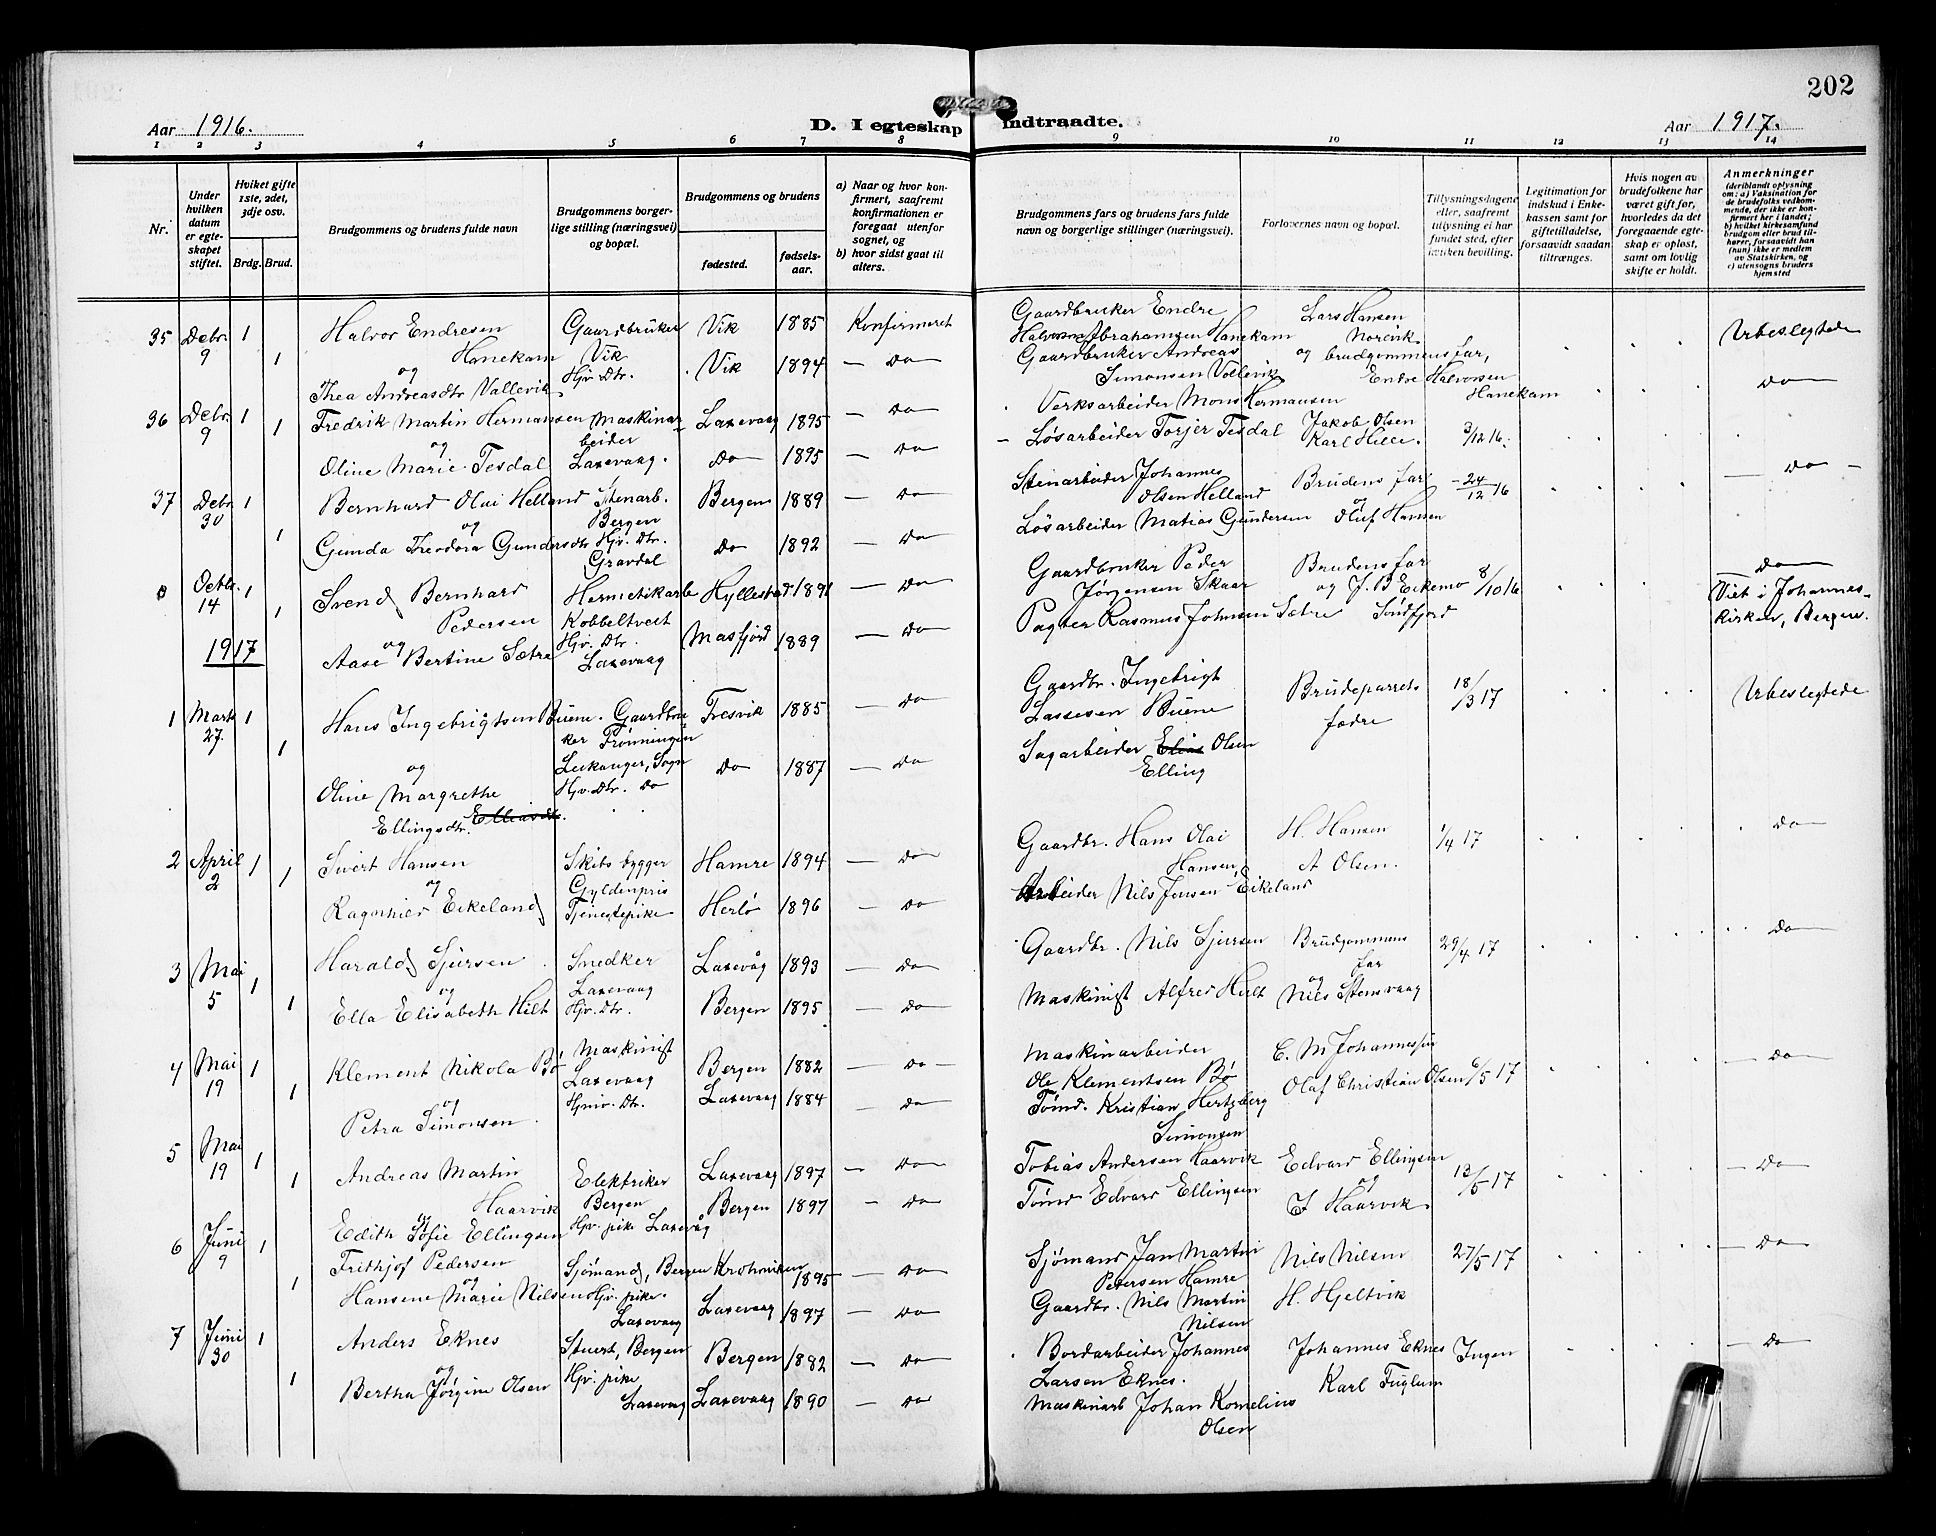 202
Aar 1916.
D. I egteskap indtraadte.
Aar 1917.
1 2 3 4 5 6 7 8 9 10 11 12 13 14
Nr.
Under hvilken datum er egteskapet stiftet.
Hviket gifte 1ste, 2det, 3dje osv.
Brdg. Brud.
Brudgommens og brudens fulde navn
Brudgommens borgerlige stilling (næringsvei) og bopæl.
Brudgommens og brudens
fødested.
fødselsaar.
a) Naar og hvor konfirmert, saafremt konfirmationen er foregaat utenfor sognet, og
b) hvor sidst gaat til alters.
Brudgommens fars og brudens fars fulde navn og borgerlige stillinger (næringsvei).
Forlovernes navn og bopæl.
Tillysningsdagene eller, saafremt utlysning ei har fundet sted, efter hvilken bevilling.
Legitimation for indskud i Enkekassen samt for giftetilladelse, forsaavidt saadan tiltrænges.
Hvis nogen av brudefolkene har været gift før, hvorledes da det foregaaende egteskap er opløst, samt om lovlig skifte er holdt.
Anmerkninger
(deriblandt oplysning om: a) Vaksination for de brudefolks vedkommende, der ikke er konfirmert her i landet; b) hvilket kirkesamfund brudgom eller brud tilhører, forsaavidt han (hun) ikke er medlem av Statskirken, og c) utensogns bruders hjemsted
35 Debr. 9 1 Halvor Endresen Hanekam Gaardbruker Vik Vik 1885 Konfirmeret Gaardbruker Endre Halvorsen Abrahamsen Hanekam Lars Hansen Norevik Ubeslegtede
og
1 Thea Andreasdtr Vallevik Hjv. Dtr. Vik 1894 — Do Gaardbruker Andreas Simonsen Vallevik og brudgommens far, Endre Halvorsen Hanekam
36 Debr. 9 1 Fredrik Martin Hermansen Maskinarbeider Laxevaag 1895 — Do Verksarbeider Mons Hermansen Jakob Olsen 3/12 16. Do
og
1 Oline Marie Tesdal Laxevaag. Do 1895 — Do Løsarbeider Torjer Tesdal Karl Hille.
37 Debr. 30 1 Bernhard Olai Helland Stenarb. Bergen Bergen 1889 — Do Stenarbeider Johannes Olsen Helland Brudens far 24/12 16 — Do —
og
1 Gunda Theodora Gundersdtr Hjv. Dtr. Gravdal Do 1892 — Do Løsarbeider Matias Gundersen og Oluf Hansen
0 Octbr. 14 1 Svend Bernhard Pedersen Hermetikarb Kobbeltveit Hyllestad 1891 — Do Gaardbruker Peder Jørgensen Skaar Brudens far og J. B Eikemo 8/10 16 Do Viet i Johanneskirken, Bergen.
og
1 Aase Bertine Sætre Hjv. Dtr. Laxevaag Masfjord 1889 — Do Pagter Rasmus Johnsen Sætre Søndfjord
1917
1 Marts 27. 1 Hans Ingebrigtsen Buene. Gaardbruker Frønningen Leikanger, Sogn Fresvik 1885 — Do Gaardbr. Ingebrigt Lassesen Buene Brudeparrets fædre 18/3 17 Ubeslegtede
og
1 Oline Margrethe Ellingsdtr. Eliasdtr. Hjv. Dtr. Do Do 1887 — Do Sagarbeider Elias Olsen Elling
2 April 2 1 Sivert Hansen Skibsbygger Gyldenpris Hamre 1894 — Do Gaardbr. Hans Olai Hansen, H. Hansen 1/4 17 Do
og
1 Ragnhild Eikeland Tjenestepike Herlø 1896 — Do Arbeider Nils Jensen Eikeland A Olsen.
3 Mai 5 1 Harald Sjursen Snedker Laxevaag Laxevåg 1893 — Do Gaardbr. Nils Sjursen Brudgommens far 29/4 17 Do
og
1 Ella Elisabeth Hilt Hjv. Dtr. Bergen 1895 — Do Maskinist Alfred Hilt og Nils Stensvaag
4 Mai 19 1 Klement Nikola Bø Maskinist Laxevaag Bergen 1882 — Do — Maskinarbeider Ole Klementsen Bø C. M Johannessen 6/5 17 — Do
og
1 Petra Simonsen Hjv. Dtr. Laxevaag 1884 — Do Tømd. Kristian Hertzberg Simonsen Olaf Christian Olsen
5 Mai 19 1 Andreas Martin Haarvik Elektriker Bergen Laxevaag 1897 — Do Tobias Andersen Haarvik Edvard Ellingsen 13/5 17 — Do
og
1 Edith Sofie Ellingsen Hjv. pike Laxevåg Bergen 1897 — Do Tømd Edvard Ellingsen og J Haarvik
6 Juni 9 1 Frithjof Pedersen Sjømand, Bergen 1895 — Do Sjømand Jan Martin Petersen Hamre Nils Nilsen 27/5 17 — Do
og
1 Hansene Marie Nilsen Hjv. pike. Laxevaag Laxevaag 1897 — Do Gaardbr. Nils Martin Nilsen H. Hjeltvik
7 Juni 30 1 Anders Eknes Stuert, Bergen Bergen 1882 — Do Bordarbeider Johannes Larsen Eknes. Johannes Eknes Ingen — Do
og
1 Bertha Jørgine Olsen Hjv. pike Laxevaag Laxevaag 1890 — Do Maskinarb Johan Kornelius Olsen Karl Fuglum